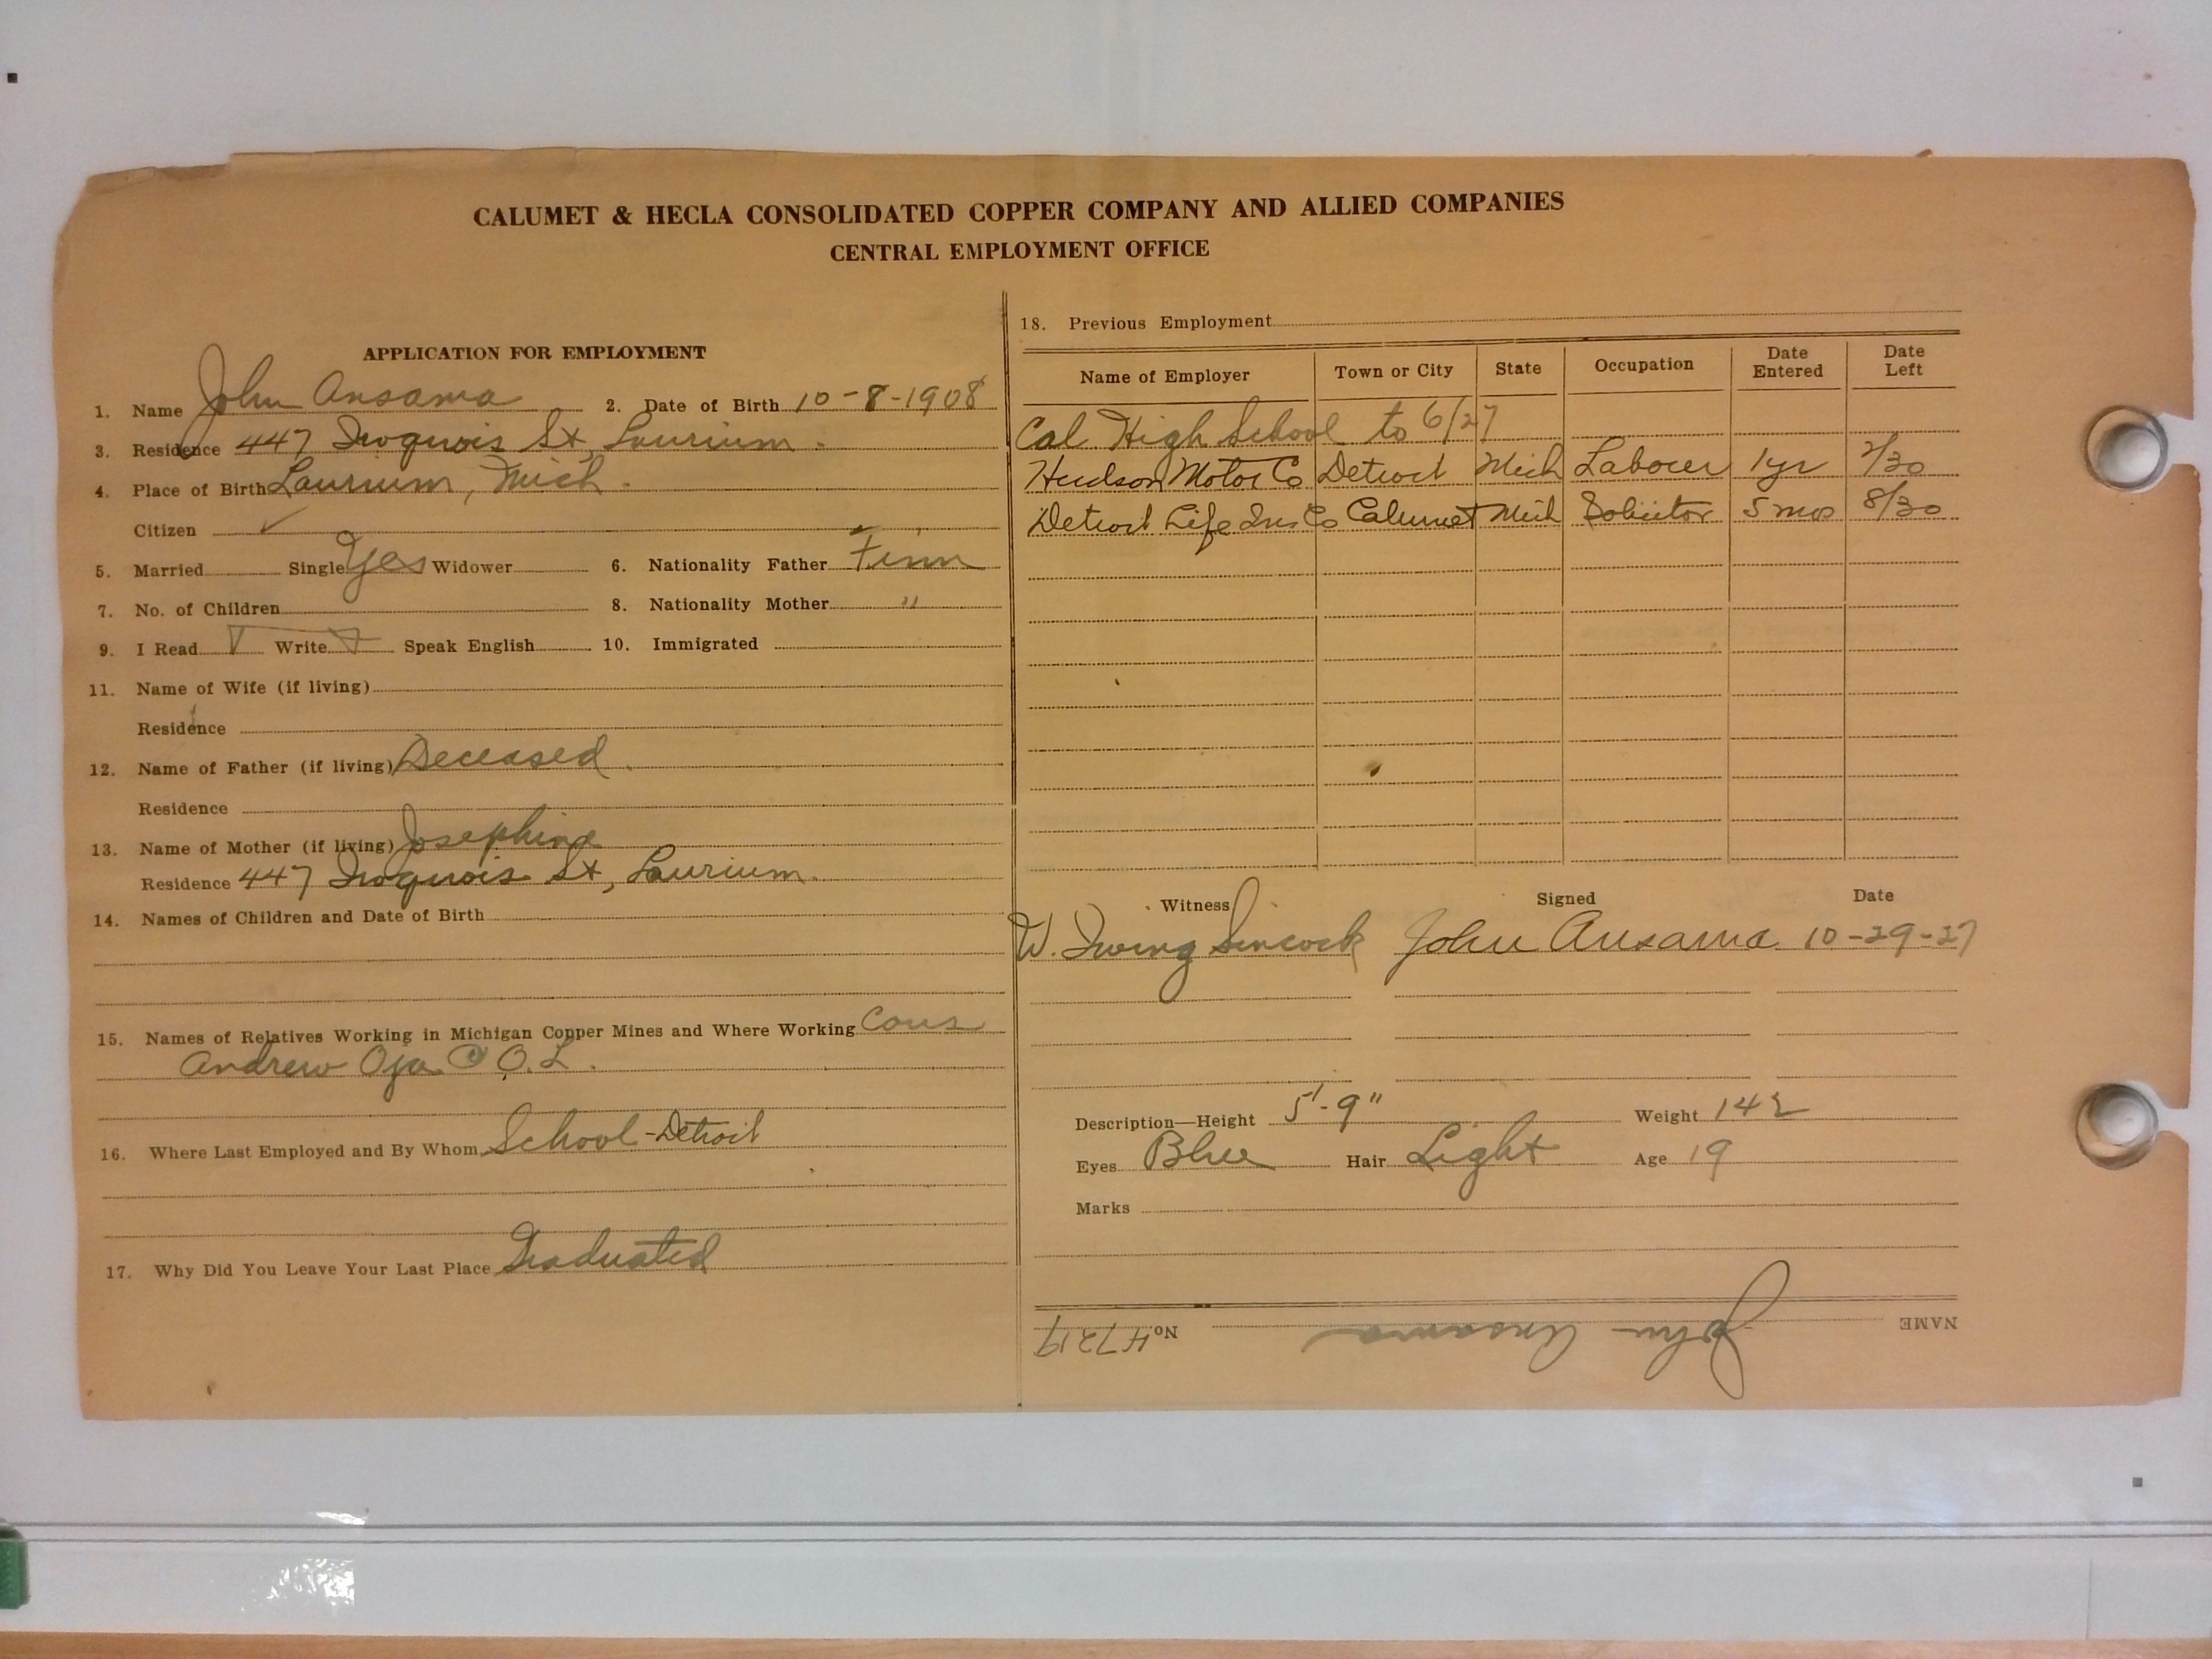 CALUMET & HECLA CONSOLIDATED COPPER COMPANY AND ALLIED COMPANIES
CENTRAL EMPLOYMENT OFFICE
APPLICATION FOR EMPLOYMENT
1. Name John Ansama 2. Date of Birth 10-8-1908
3. Residence 447 Iroquois St, Laurium.
4. Place of Birth Laurium, Mich.
Citizen ✓
5. Married Single Yes Widower 6. Nationality Father Finn
7. No. of Children 8. Nationality Mother "
9. I Read Write Speak English 10. Immigrated
11. Name of Wife (if living)
Residence
12. Name of Father (if living) Deceased.
Residence
13. Name of Mother (if living) Josephine
Residence 447 Iroquois St, Laurium.
14. Names of Children and Date of Birth
15. Names of Relatives Working in Michigan Copper Mines and Where Working Cous
Andrew Oja @ O.L.
16. Where Last Employed and By Whom School-Detroit
17. Why Did You Leave Your Last Place Graduated
18. Previous Employment
Name of Employer Town or City State Occupation Date Entered Date Left
Cal High School to 6/27
Hudson Motor Co Detroit Mich Laborer 1 yr /30
Detroit Life Ins Co Calumet Mich Solicitor 5 mos 8/30
Witness Signed Date
W. Irving Sincock John Ansama 10-29-27
Description—Height 5'-9" Weight 142
Eyes Blue Hair Light Age 19
Marks
NAME John Ansama No. 47219